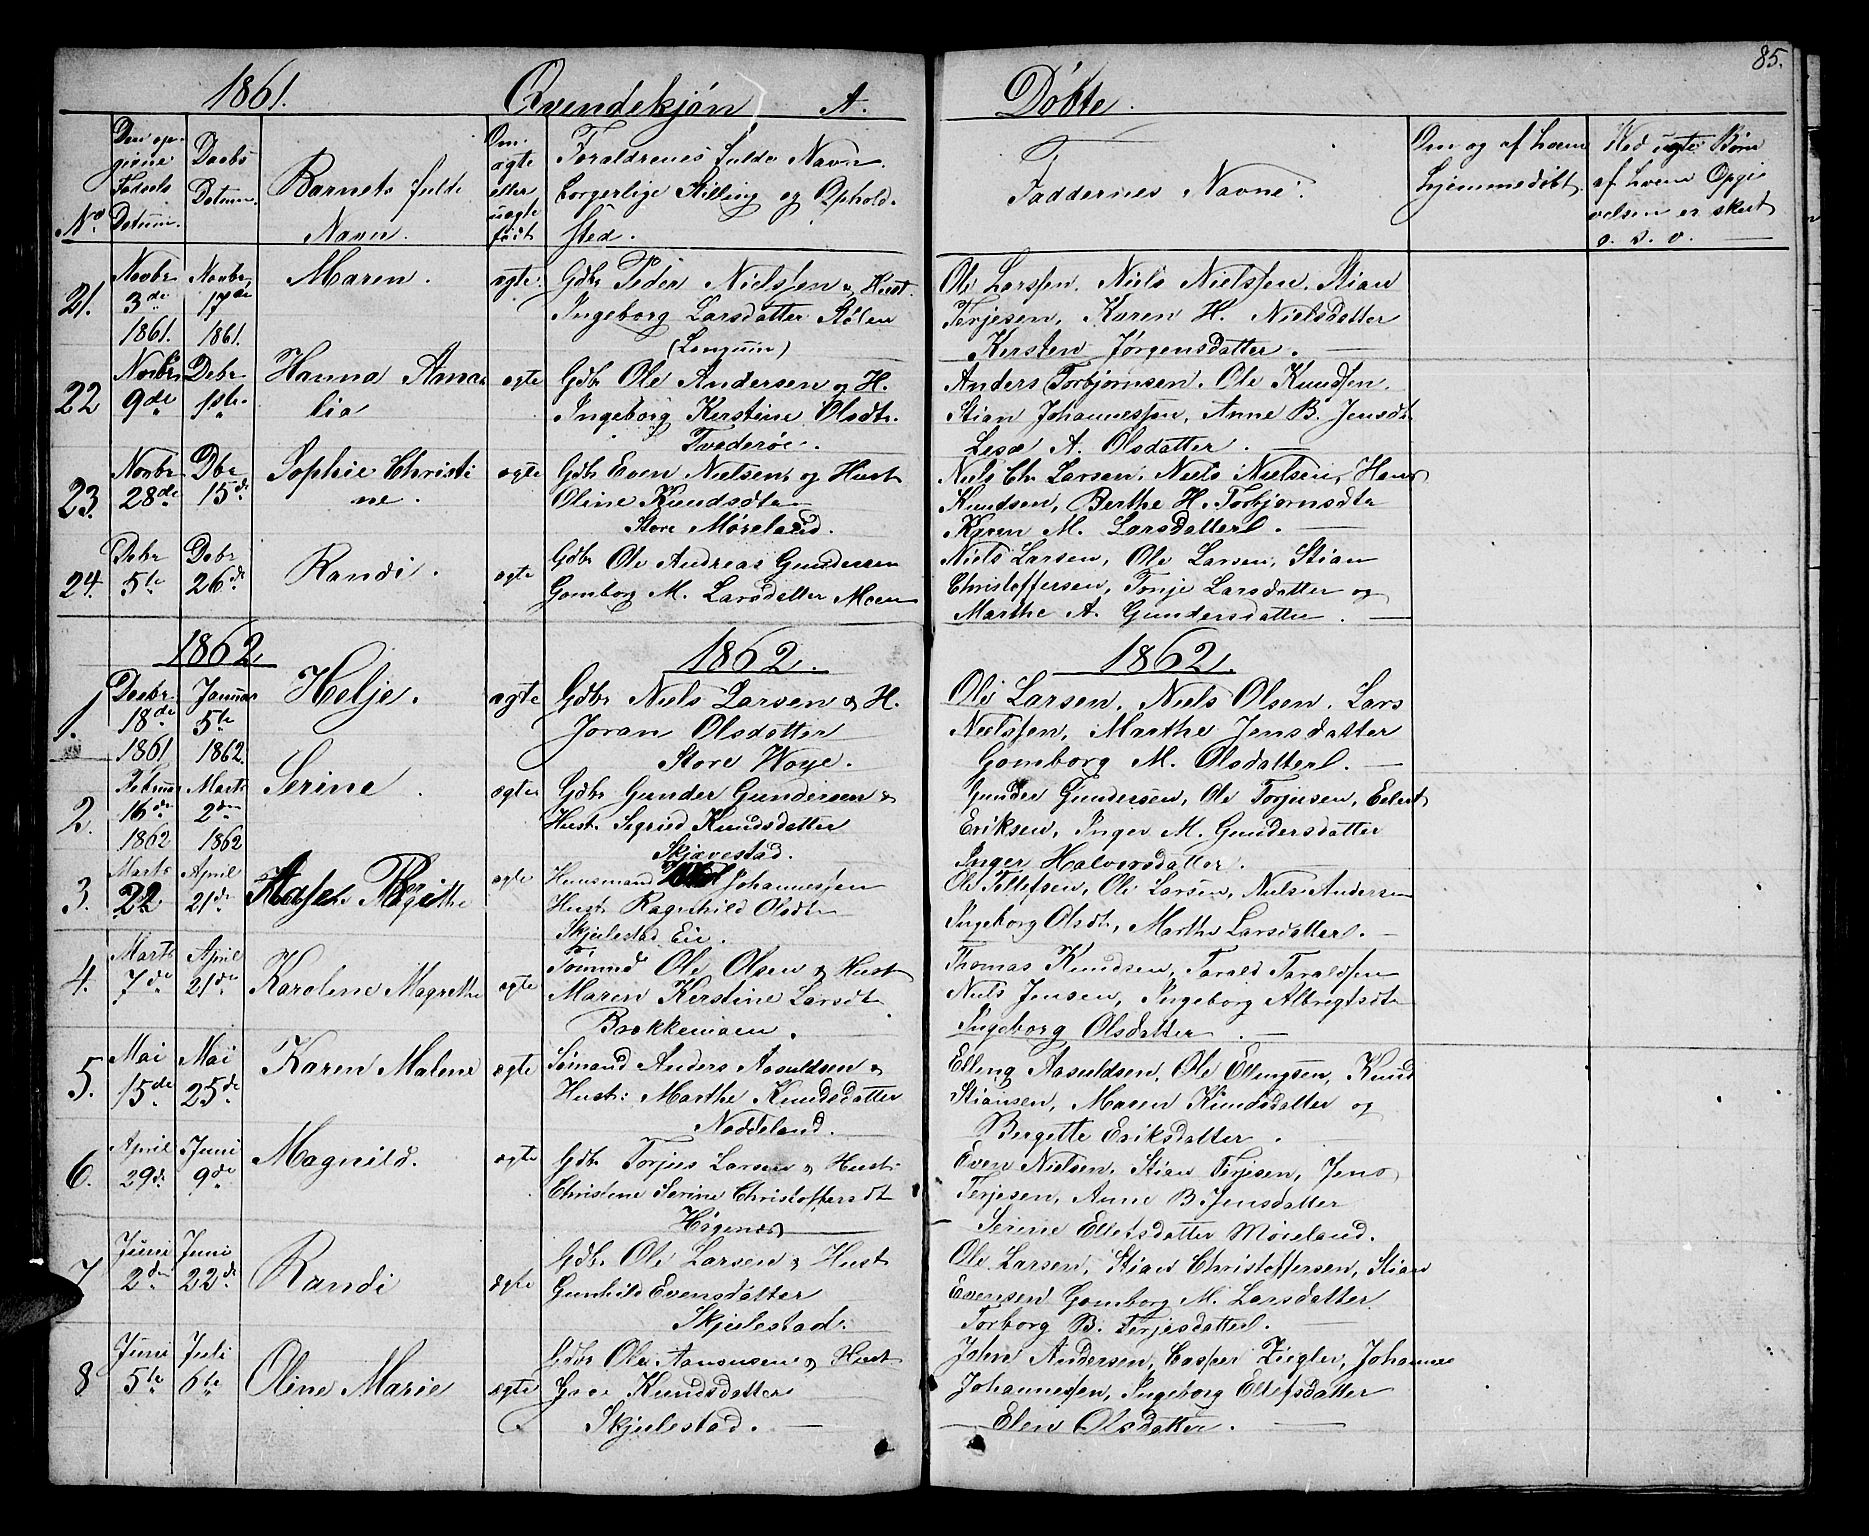 85.
1861. Qvendekjön A. Döbte.
No.
Den op-
givne
Fødsels
Datum.
Daabs
Datum.
Barnets fulde
Navn.
Om
ægte
eller
uægte
født
Forældrenes fulde Navn
borgerlige Stilling og Ophold-
sted.
Faddernes Navne.
Om og af hvem
hjemmedöbt.
Ved uægte Börn
af hvem Opgi
velsen er skeet
o. s. v.
21. Novbr 3de 1861. Novbr 17de 1861. Maren. ægte Gdbr Peder Nielssen & Hust.
Ingeborg Larsdatter Stölen
(Longum)
Ole Larssen. Niels Nielssen. Stian
Terjesen, Karen H. Nielsdatter
Kersten Jørgensdatter.
22 Novbr 9de Debr 1ste Hanna Ama
lia ægte Gdbr Ole Andersen og H.
Ingeborg Kerstine Olsdtr.
Tvederöe.
Anders Torbjørnsen. Ole Knudsen.
Stian Johannessen, Anne B. Jensdt
A. Olsdatter.
23. Novbr 28de Dbr 15de Sophie Christi
ne. ægte Gdbr Even Nielsen og Hust
Oline Knudsdtr
Store Möreland.
Niels Chr Larsen, Niels Nielsen, Hans
Knudsen, Berthe H. Torbjørnsdtr
Karen M. Larsdatter.
24. Debr 5te Debr 26de Randi. ægte Gdbr Ole Andreas Gundersen
Gomborg M. Larsdatter Moen
Niels Larsen, Ole Larsen, Stian
Christoffersen, Tonje Larsdatter og
Marthe A. Gundersdatter.
1862. 1862. 1862.
1. Decbr 18de 1861 Januar 5te 1862. Helje. ægte Gdbr Niels Larsen & H.
Joran Olsdatter
Store Woje.
Ole Larsen. Niels Olsen. Lars
Nielssen, Marthe Jensdatter
Gomborg M. Olsdatter.
2. Februar 16de 1862 Marts 2den 1862 Serine. ægte Gdbr Gunder Gundersen &
Hust. Sigried Knudsdatter
Skjævestad.
Gunder Gundersen, Ole Torjusen, Eilert
Eriksen, Inger M. Gundersdatter
Inger Halvorsdatter.
3. Marts 22 April 21de Aase Birgithe ægte Huusmand Johannessen
Hust Ragnhild Olsdtr
Skjulestad Eie.
Ole Tellefsen, Ole Larsen, Niels Andersen
Ingeborg Olsdt, Marthe Larsdatter.
4. Marts 7de April 21de Karoline Magrethe ægte Tömmd Ole Olsen & Hust
Maren Kerstine Larsdt
Brekkemoen.
Thomas Knudsen, Tarald Taraldsen
Niels Jensen, Ingeborg Albregtsdtr
Ingeborg Olsdatter.
5. Mai 15de Mai 25de Karen Malene ægte Sömand Anders Aasuldsen &
Hust: Marthe Knudsdatter
Neddeland.
Elling Aasuldsen. Ole Ellingsen, Knud
Stiansen, Maren Knudsdatter og
Bergette Eriksdatter.
6. April 29de Juni 9de Magnild. ægte Gdbr Torjus Larsen & Hust:
Christine Serine Christoffersdt
Högenæs
Even Nielsen. Stian Terjesen, Jens
Terjesen, Anne B. Jensdatter
Serine Ellefsdatter Möreland.
7 Juni 2den Juni 22de Randi ægte Gdbr Ole Larsen & Hust
Gunhild Evensdatter
Skjulestad.
Ole Larsen, Stian Christoffersen, Stian
Evensen Gomborg M. Larsdatter
Torborg B. Terjesdatter.
8 Juni 5te Juli 6te Oline Marie ægte Gdbr Ole Aanunsen & Hust
Knudsdatter
Skjulestad.
John Andersen, Casper Ziegler, Johannes
Johannessen, Ingeborg Ellefsdatter
Elen Olsdatter.